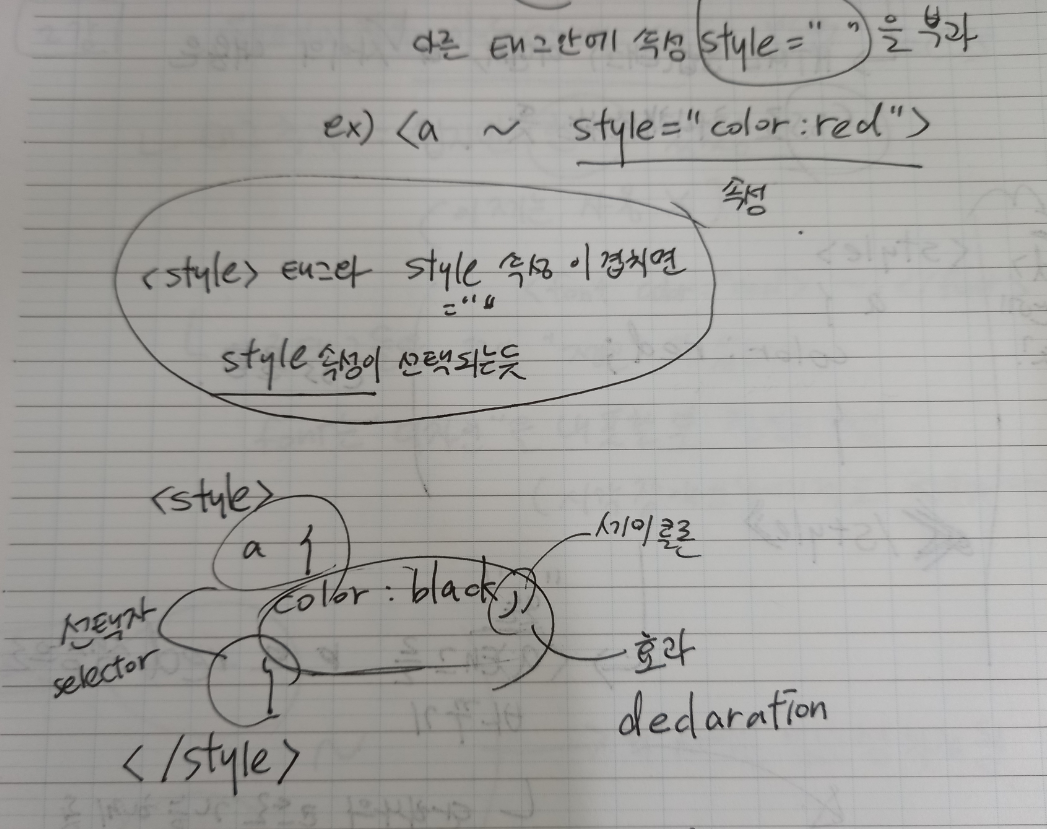 다른 태그안에 속성 style=" " 을 부과
ex) <a ~ style="color:red">
속성
<style> 태그와 style 속성이 겹치면
=""
style 속성이 선택되는듯
<style>
a {
세미콜론
color : black ;
선택자
selector
}
효과
declaration
</style>